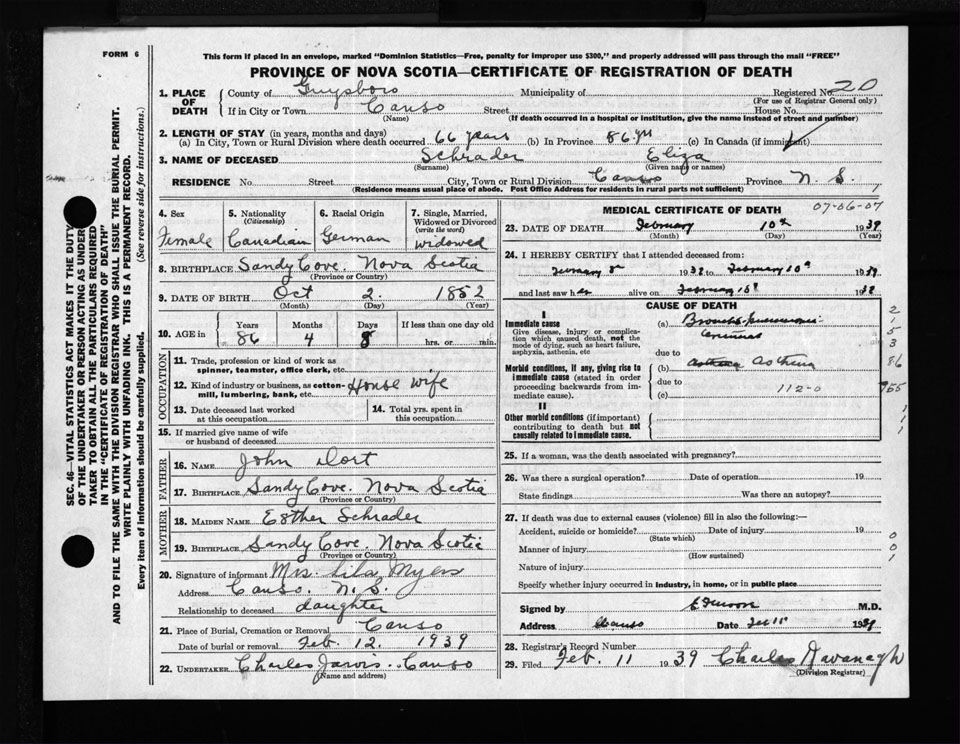 FORM 6
This form if placed in an envelope, marked "Dominion Statistics—Free, penalty for improper use $300," and properly addressed will pass through the mail "FREE"
PROVINCE OF NOVA SCOTIA—CERTIFICATE OF REGISTRATION OF DEATH
SEC. 46—VITAL STATISTICS ACT MAKES IT THE DUTY
OF THE UNDERTAKER OR PERSON ACTING AS UNDERTAKER
TO OBTAIN ALL THE PARTICULARS REQUIRED
IN THE "CERTIFICATE OF REGISTRATION OF DEATH"
AND TO FILE THE SAME WITH THE DIVISION REGISTRAR WHO SHALL ISSUE THE BURIAL PERMIT.
WRITE PLAINLY WITH UNFADING INK. THIS IS A PERMANENT RECORD.
Every item of information should be carefully supplied. (See reverse side for instructions.)
1. PLACE OF DEATH
County of Guysboro Municipality of Registered No. 20
(For use of Registrar General only)
If in City or Town Canso Street House No.
(Name) (If death occurred in a hospital or institution, give the name instead of street and number)
2. LENGTH OF STAY (in years, months and days)
(a) In City, Town or Rural Division where death occurred 66 years (b) In Province 86 yrs (c) In Canada (if immigrant)
3. NAME OF DECEASED Schrader Eliza
(Surname) (Given name or names)
RESIDENCE No. Street City, Town or Rural Division Canso Province N. S.
(Residence means usual place of abode. Post Office Address for residents in rural parts not sufficient)
4. Sex Female
5. Nationality (Citizenship) Canadian
6. Racial Origin German
7. Single, Married, Widowed or Divorced (write the word) Widowed
8. BIRTHPLACE Sandy Cove. Nova Scotia
(Province or Country)
9. DATE OF BIRTH Oct 2. 1852
(Month) (Day) (Year)
10. AGE in Years 86 Months 4 Days 8 If less than one day old hrs. or min.
OCCUPATION
11. Trade, profession or kind of work as spinner, teamster, office clerk, etc.
12. Kind of industry or business, as cotton-mill, lumbering, bank, etc. House wife
13. Date deceased last worked at this occupation
14. Total yrs. spent in this occupation
15. If married give name of wife or husband of deceased
FATHER
16. NAME John Dort
17. BIRTHPLACE Sandy Cove. Nova Scotia
(Province or Country)
MOTHER
18. MAIDEN NAME Esther Schrader
19. BIRTHPLACE Sandy Cove. Nova Scotia
(Province or Country)
20. Signature of informant Mrs. Lila Myers
Address Canso. N. S.
Relationship to deceased daughter
21. Place of Burial, Cremation or Removal Canso
Date of burial or removal Feb. 12. 1939
22. UNDERTAKER Charles Jarvis. Canso
(Name and address)
MEDICAL CERTIFICATE OF DEATH 07-06-07
23. DATE OF DEATH February 10th 1939
(Month) (Day) (Year)
24. I HEREBY CERTIFY that I attended deceased from:
February 1938 to February 10th 1939
and last saw her alive on February 193
CAUSE OF DEATH
I
Immediate cause
Give disease, injury or complication which caused death, not the mode of dying, such as heart failure, asphyxia, asthenia, etc
(a) Broncho pneumonia
due to
Morbid conditions, if any, giving rise to immediate cause (stated in order proceeding backwards from immediate cause).
(b) Asthma
due to
(c) 112-0
II
Other morbid conditions (if important) contributing to death but not causally related to immediate cause.
86
955
25. If a woman, was the death associated with pregnancy?
26. Was there a surgical operation? Date of operation 19
State findings Was there an autopsy?
27. If death was due to external causes (violence) fill in also the following:—
Accident, suicide or homicide? Date of injury 19
(State which)
Manner of injury
(How sustained)
Nature of injury
Specify whether injury occurred in industry, in home, or in public place
Signed by M.D.
Address Canso Date 1939
28. Registrar's Record Number
29. Filed Feb. 11 1939 Charles Kavanagh
(Division Registrar)